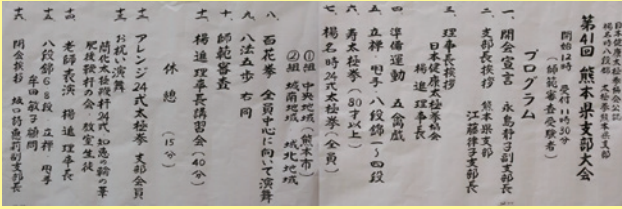 日本健康太極拳協会公認
楊名時八段錦・太極拳熊本県支部
第41回 熊本県支部大会
開始12時 受付11時30分
(師範審査受験者)
プログラム
一、開会宣言 永島静子副支部長
二、支部長挨拶 熊本県支部
江藤律子支部長
三、理事長挨拶
日本健康太極拳協会
楊進理事長
四、準備運動 五禽戯
五、立禅・甩手・八段錦一〜四段
六、寿太極拳(80才以上)
七、楊名時24式太極拳(全員)
①組 中央地域(熊本市)
②組 城南地域 城北地域
八、百花拳 全員中心に向いて演舞
九、八法五歩 右同
十、師範審査
十一、楊進理事長講習会(40分)
休憩 (15分)
十二、アレンジ24式太極拳 支部全員
十三、お祝い演舞
簡化太極鞭杆24式 如意の輪の華
肥後鞭杆の会・教室生徒
十四、老師表演 楊進理事長
十五、八段錦6〜8段 立禅 甩手
牟田敏子顧問
十六、閉会挨拶 坂口副支部長